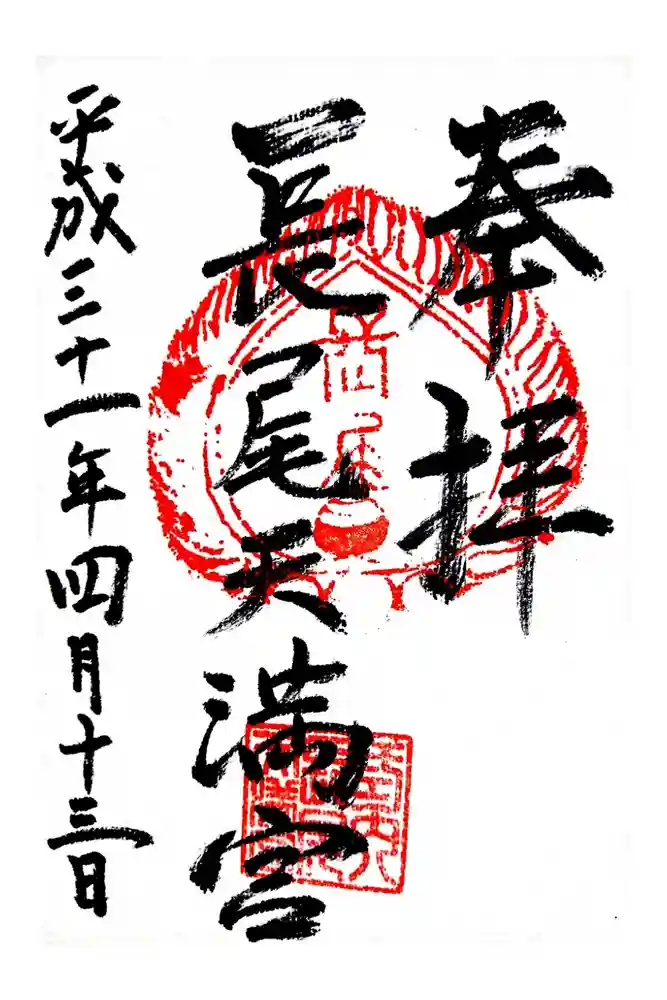 奉拝
長尾天満宮
平成三十一年四月十三日